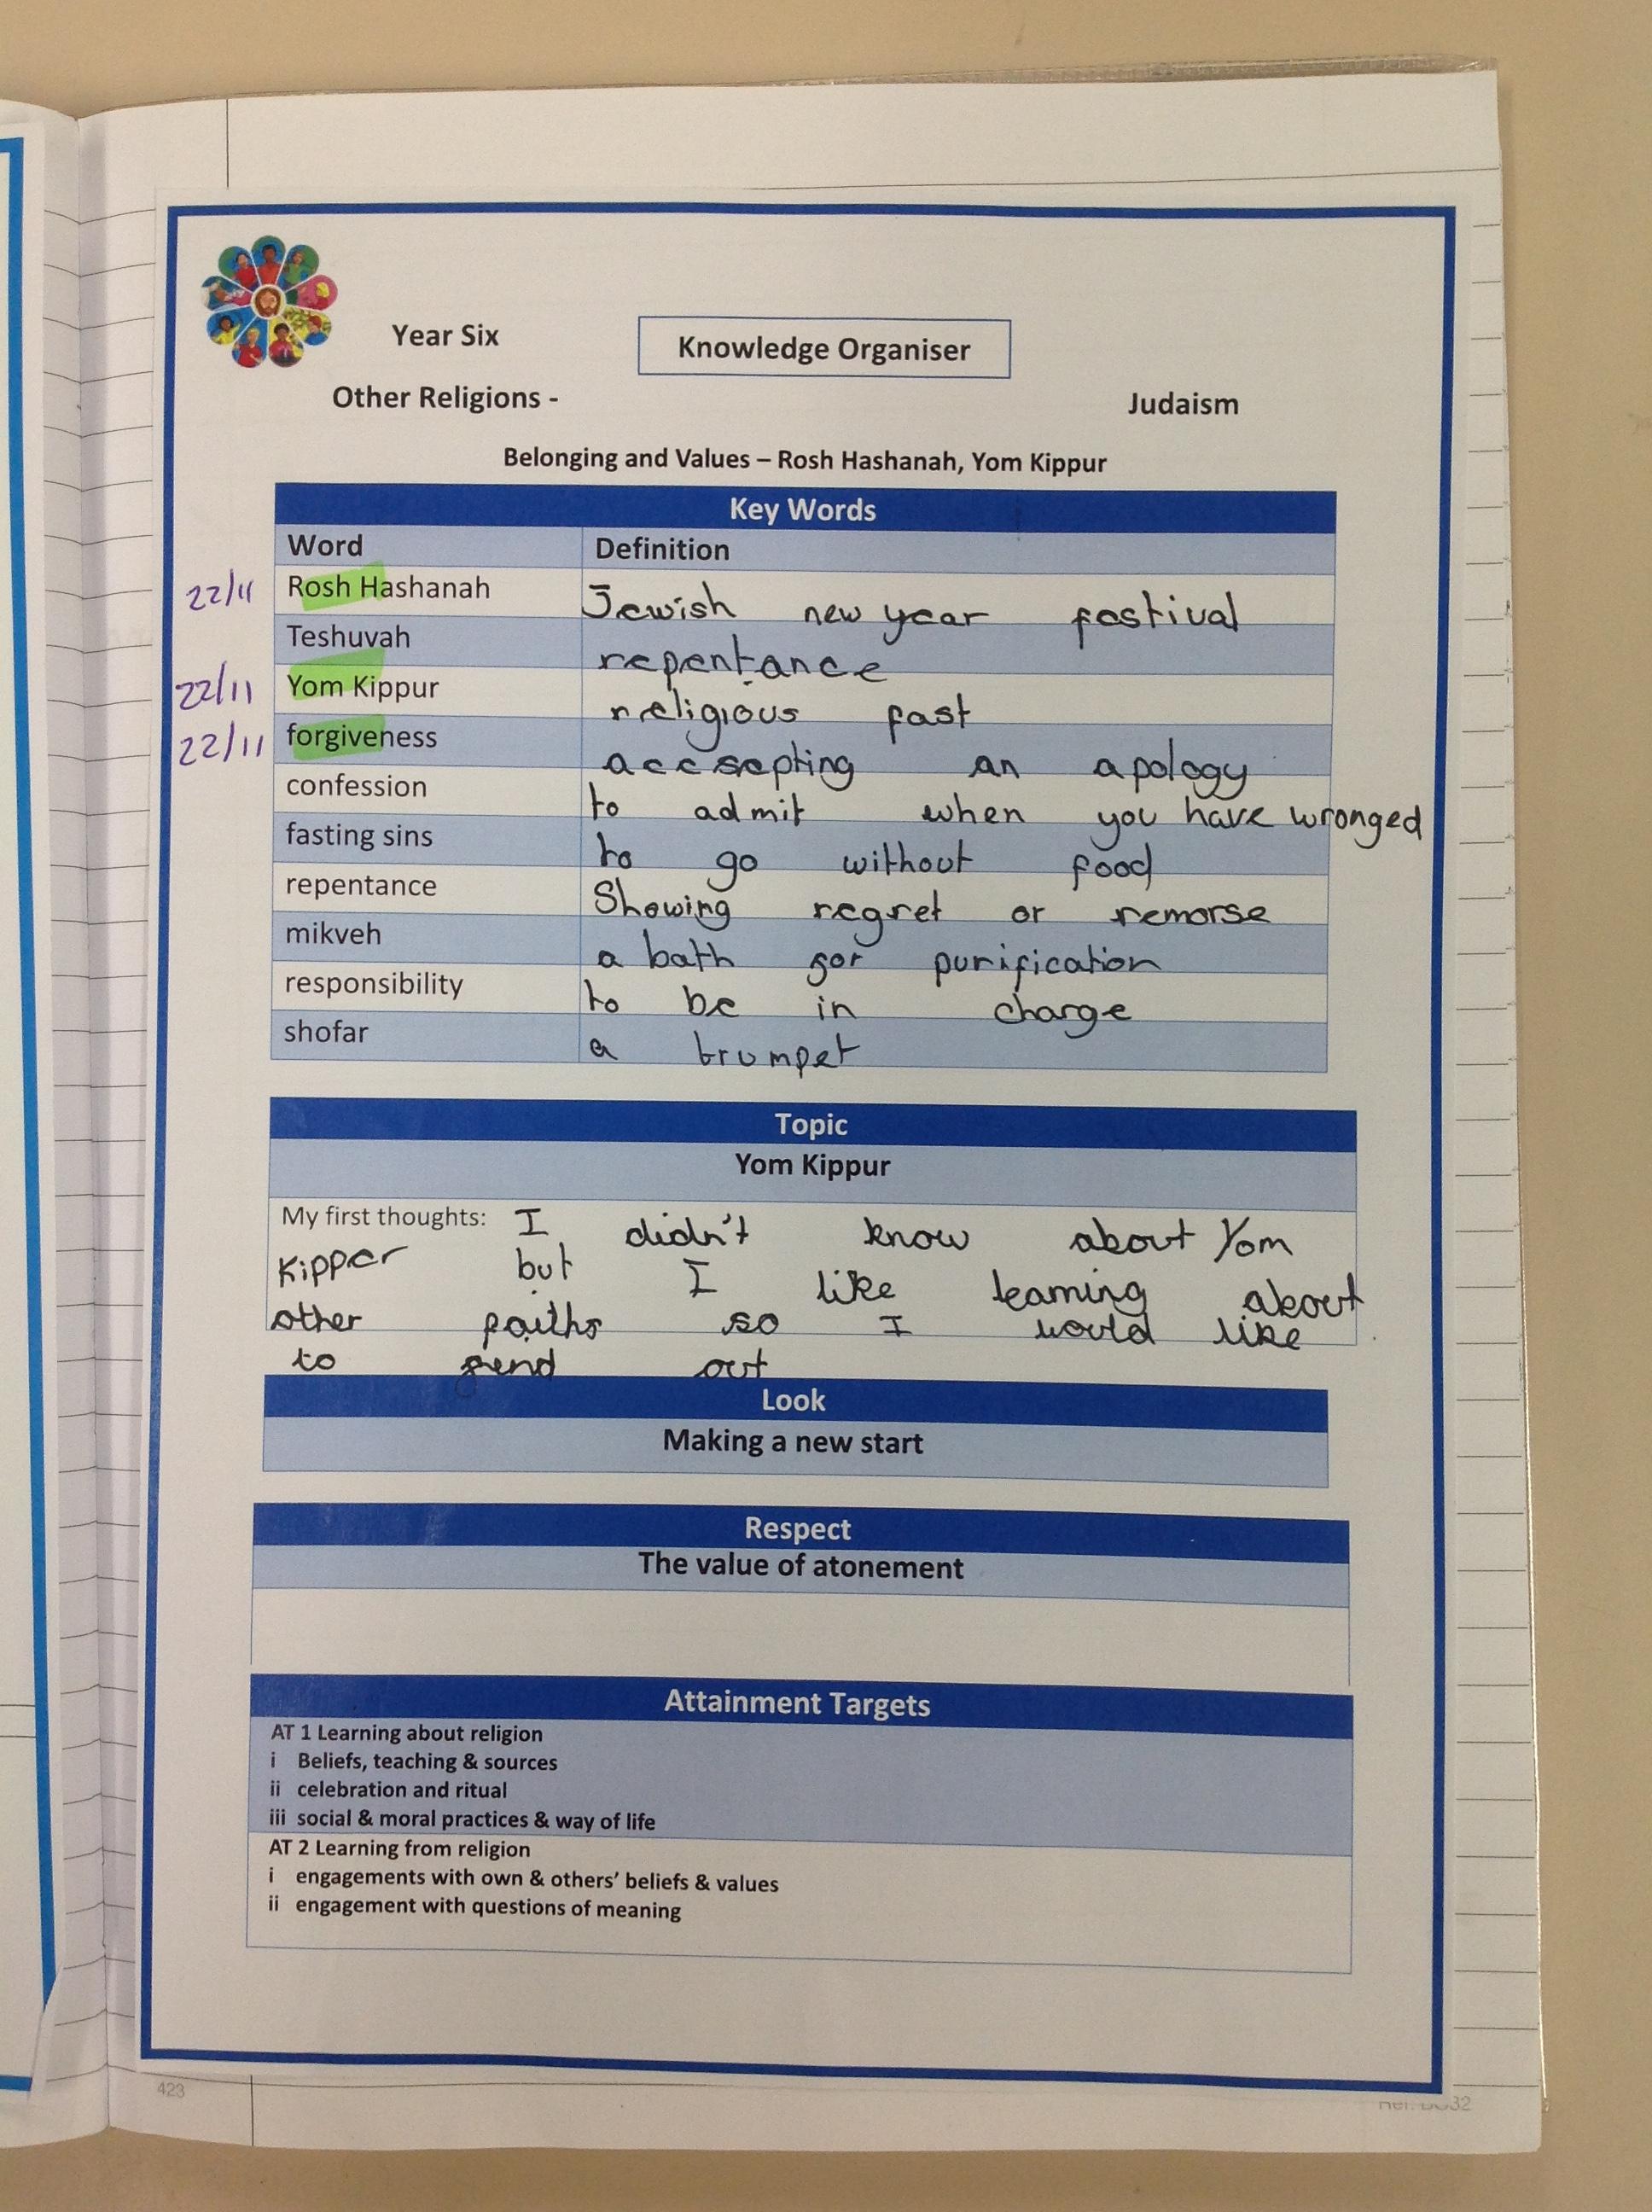 Year Six
Knowledge Organiser
Other Religions -
Judaism
Belonging and Values – Rosh Hashanah, Yom Kippur
Key Words
Word Definition
22/11 Rosh Hashanah Jewish new year festival
Teshuvah repentance
22/11 Yom Kippur religious fast
22/11 forgiveness accsepting an apology
confession to admit when you have wronged
fasting sins to go without food
repentance Showing regret or remorse
mikveh a bath for purification
responsibility to be in charge
shofar a trumpet
Topic
Yom Kippur
My first thoughts: I didn't know about Yom
Kipper but I like learning about
other faiths so I would like
to find out
Look
Making a new start
Respect
The value of atonement
Attainment Targets
AT 1 Learning about religion
i Beliefs, teaching & sources
ii celebration and ritual
iii social & moral practices & way of life
AT 2 Learning from religion
i engagements with own & others' beliefs & values
ii engagement with questions of meaning
423